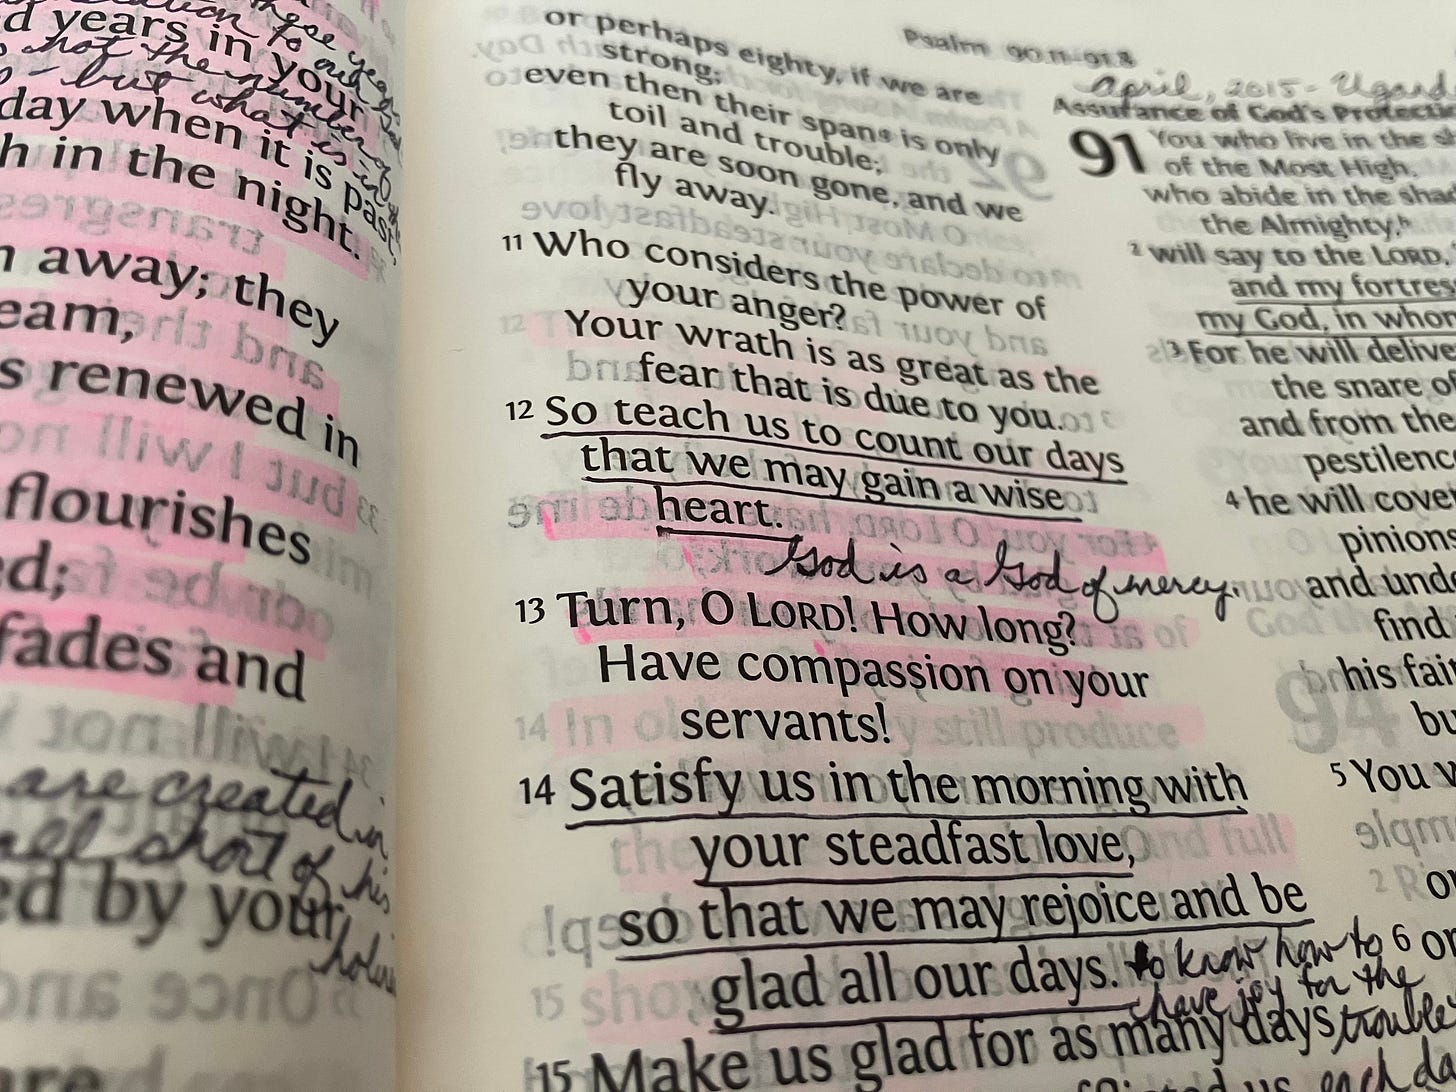 d years in your
day when it is past,
h in the night.
away; they
eam,
s renewed in
flourishes
ed;
fades and
are created in
all short of his
ed by your
Psalm 90.11–91.8
or perhaps eighty, if we are
strong;
even then their spanᵍ is only
toil and trouble;
they are soon gone, and we
fly away.
11 Who considers the power of
your anger?
Your wrath is as great as the
fear that is due to you.
12 So teach us to count our days
that we may gain a wise
heart.
God is a God of mercy.
13 Turn, O LORD! How long?
Have compassion on your
servants!
14 Satisfy us in the morning with
your steadfast love,
so that we may rejoice and be
glad all our days.
to know how to
have joy for the
trouble
15 Make us glad for as many days
each da
April, 2015 - Uganda
Assurance of God's Protectio
91 You who live in the s
of the Most High,
who abide in the sha
the Almighty,ʰ
2 will say to the LORD,
and my fortres
my God, in whom
3 For he will delive
the snare of
and from the
pestilenc
4 he will cove
pinions
and unde
find
his fai
bu
5 You
or
6 or